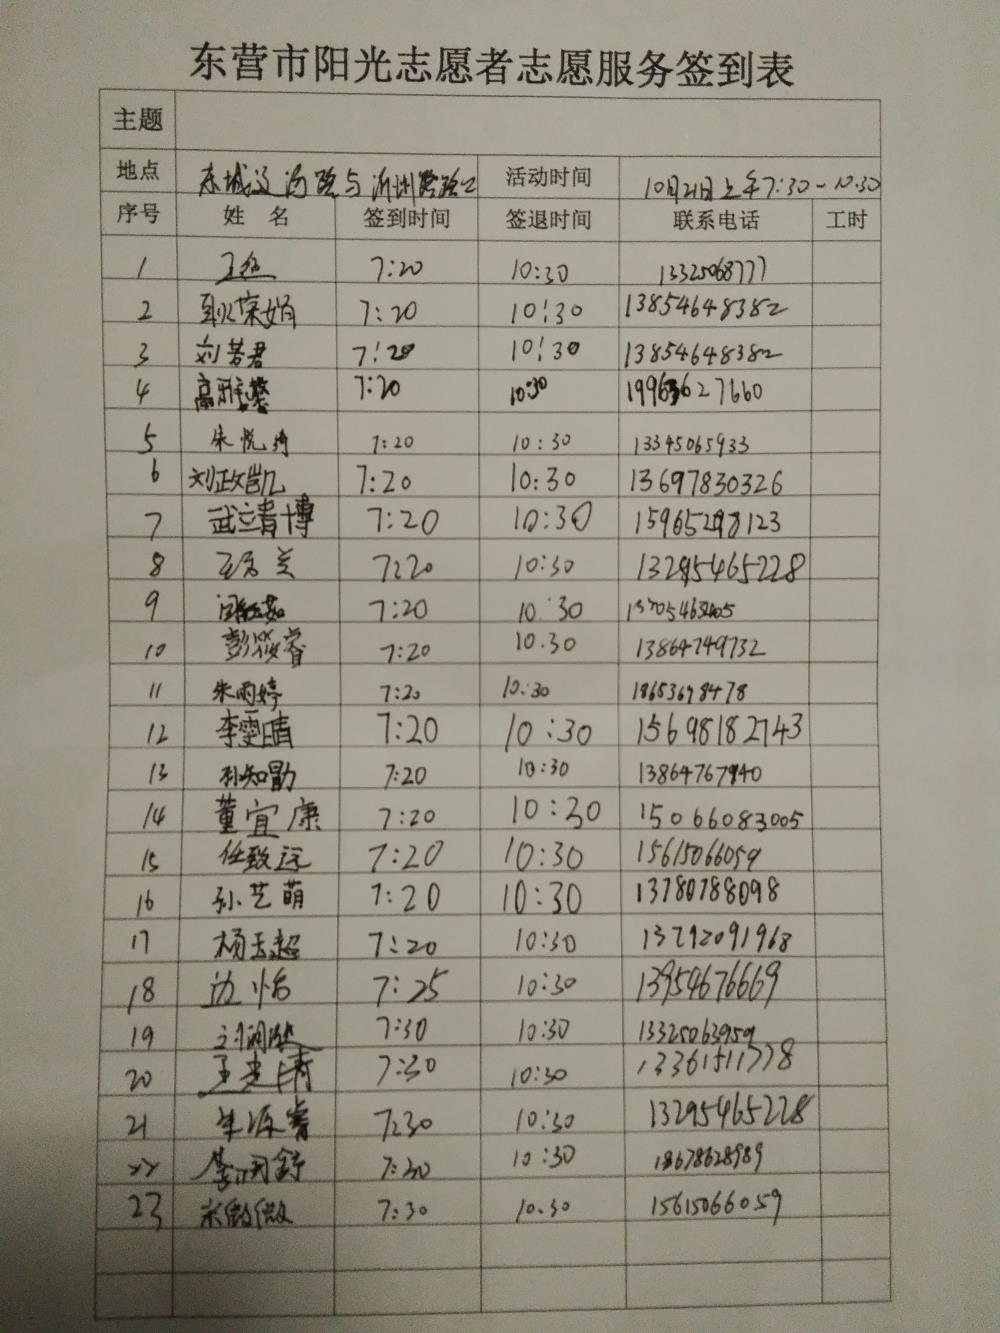 东营市阳光志愿者志愿服务签到表
主题
地点 东城 与 路 活动时间 10月21日上午7:30-10:30
序号 姓名 签到时间 签退时间 联系电话 工时
1 7:20 10:30 13325068777
2 7:20 10:30 13854648382
3 刘若君 7:20 10:30 13854648382
4 高雅馨 7:20 10:30 19963627660
5 朱悦绮 7:20 10:30 13345065933
6 刘政凯 7:20 10:30 13697830326
7 武立青博 7:20 10:30 15965298123
8 7:20 10:30 13295465228
9 7:20 10:30
10 彭筱睿 7:20 10.30 13864749732
11 朱雨婷 7:20 10:30 18653698478
12 李雯晴 7:20 10:30 15698182743
13 孙知勖 7:20 10:30 13864767940
14 董宜康 7:20 10:30 15066083005
15 任致远 7:20 10:30 15615066059
16 孙艺萌 7:20 10:30 13780788098
17 杨玉超 7:20 10:30 13792091968
18 边怡 7:25 10:30 13954676669
19 7:30 10:30 13325063959
20 7:30 10:30 13361511778
21 牟源睿 7:30 10:30 13295465228
22 7:30 10:30 18678628989
23 宋微微 7:30 10.30 15615066059